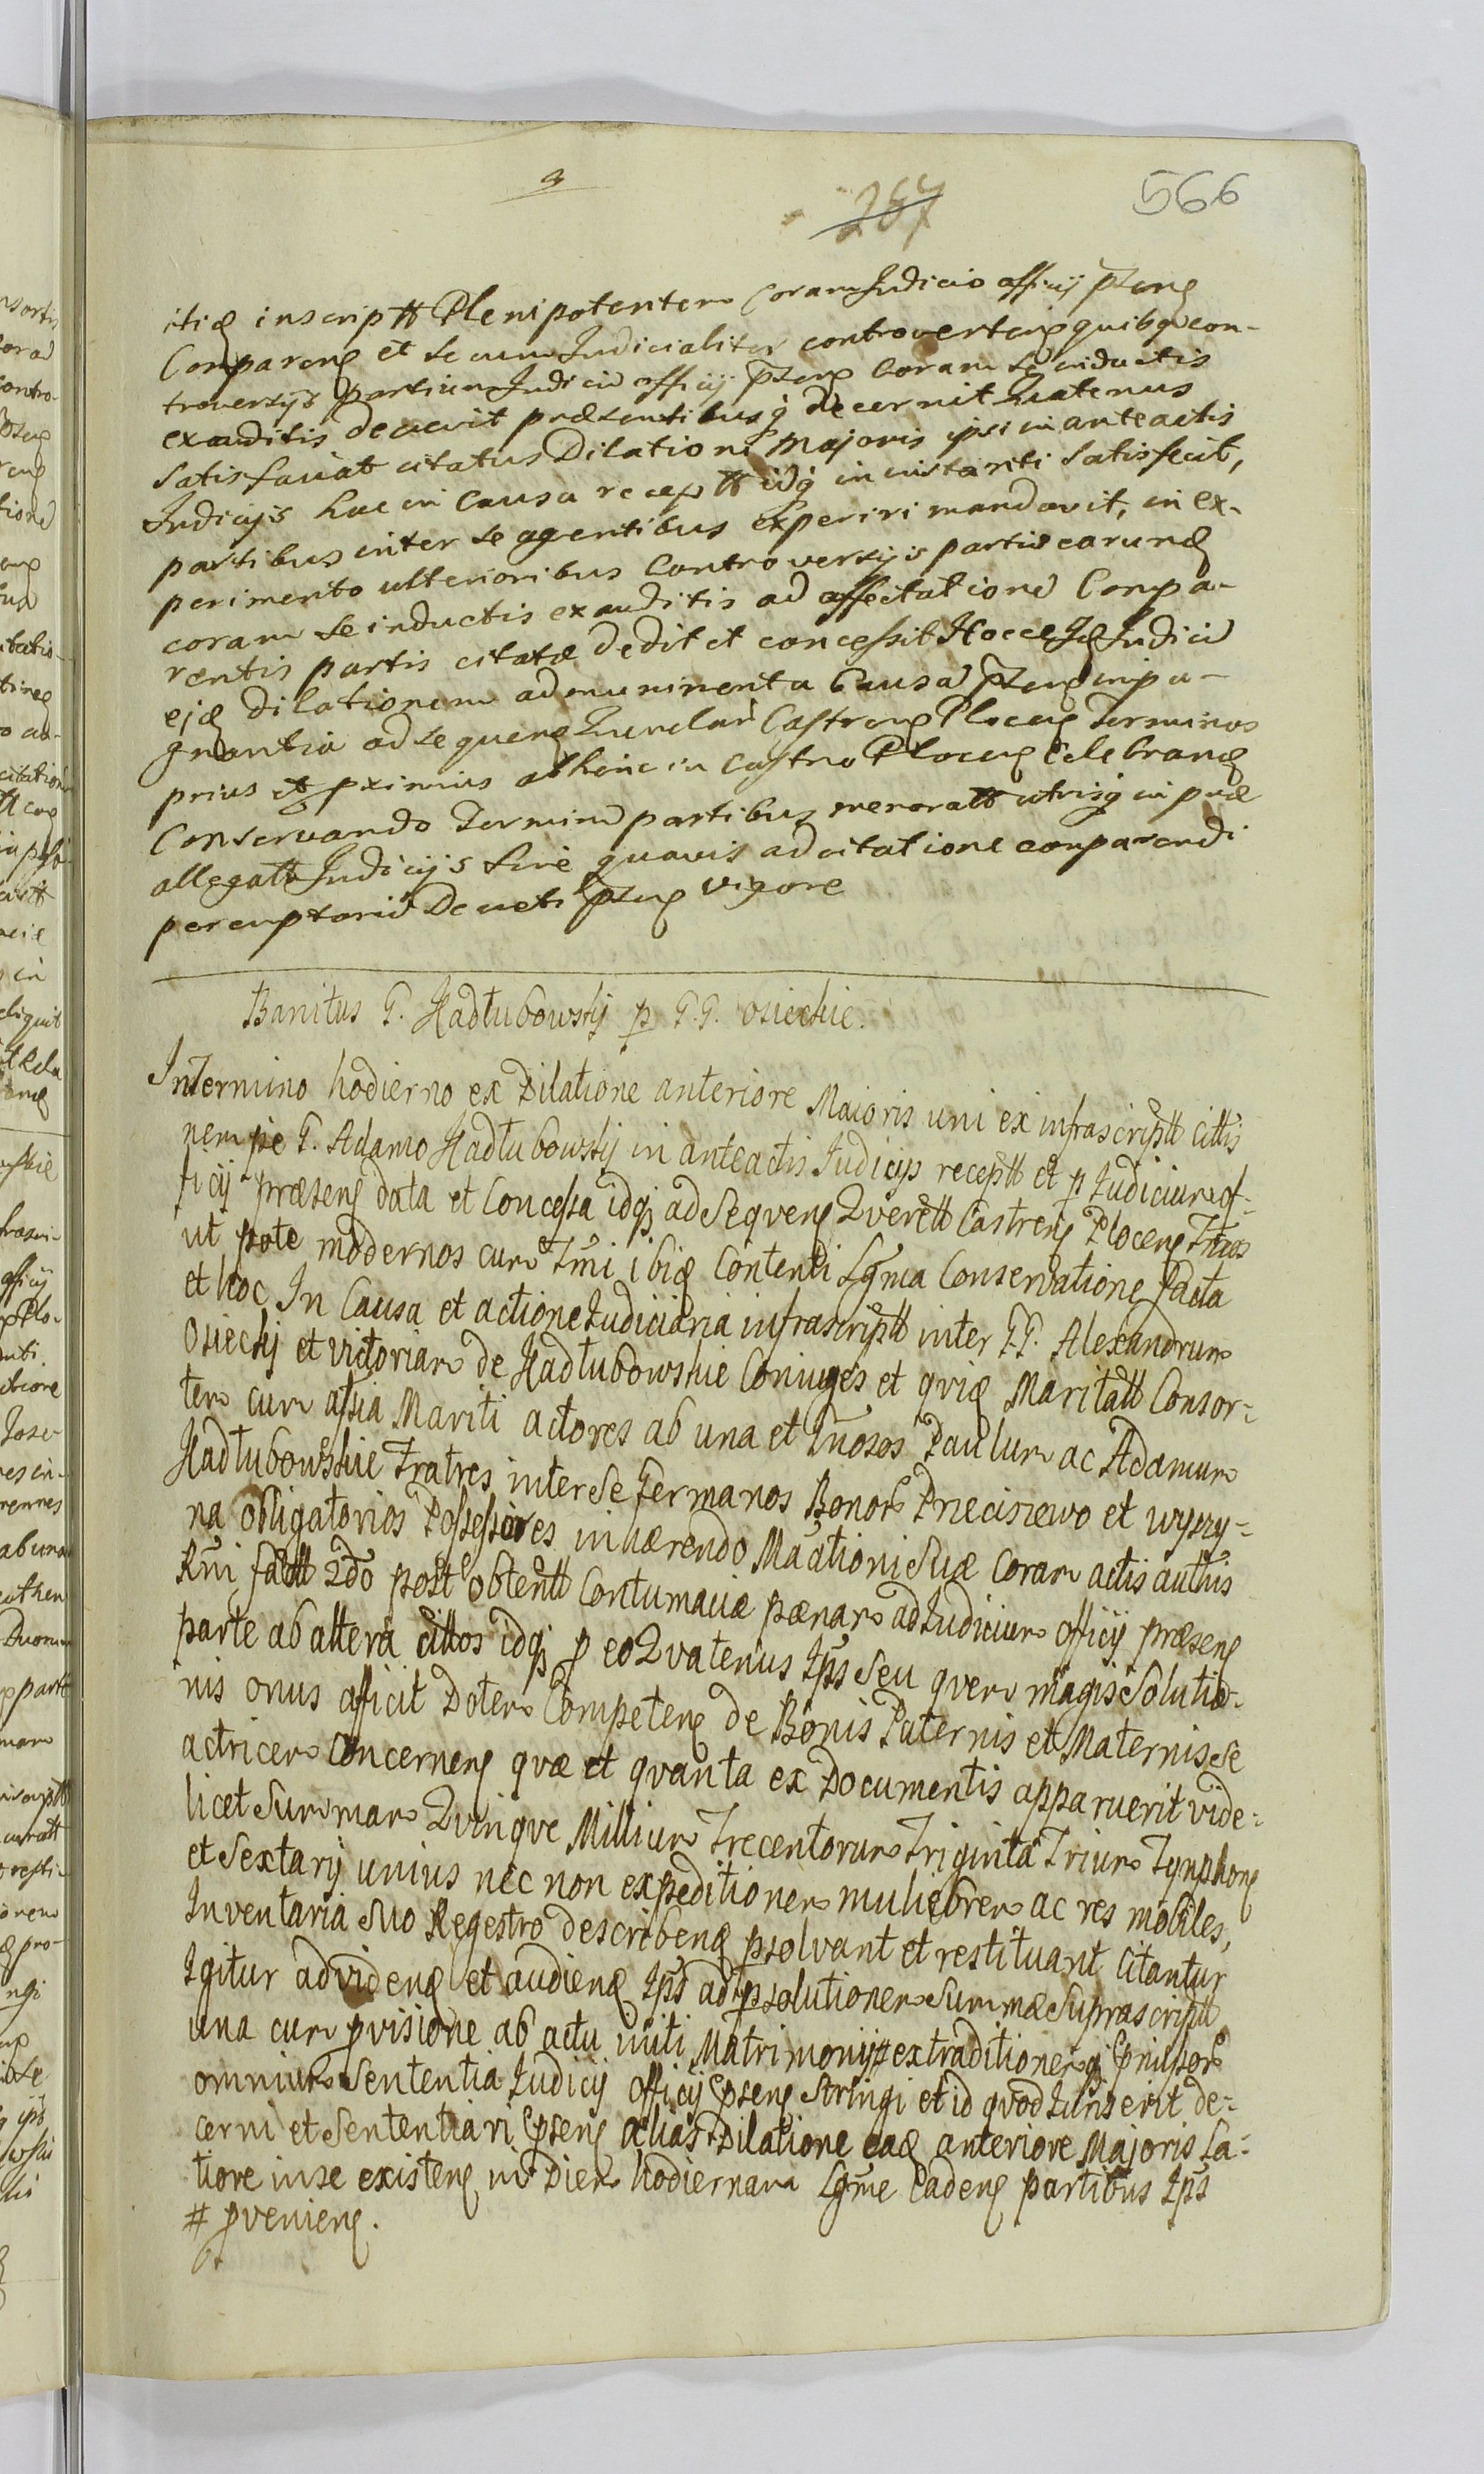 566
267
itiæ inscriptt Plenipotentem Coram Judicio officij pzens
Comparens et secum Judicialiter controvertens quibq̃ con-
troversijs partium Judiciũ officij pzens Coram se inductis
exauditis decrevit præsentibusq̃ decernit Quatenus
satisfaciat citatus Dilationi Majoris ipsi in anteactis
Judicijs hac in Causa receptt idq̃ in instanti satisfecit,
partibus inter se agentibus experiri mandavit, in ex-
perimento ulterioribus Controversijs partiũ earund
coram se inductis exauditis ad affectationẽ Compa-
rentis partis citatæ dedit et concessit Hocce Id Judiciũ
ejd dilationem ad munimenta Causæ pzens impu-
gnantia ad sequens Querelarũ Castrens Plocens Terminos
prius et pximius abhinc in Castro Plocens Celebrand
Conservando Terminũ partibus memoratt utrisq̃ in præ
allegatt Judicijs sine quavis adcitatione comparendi
peremptoriũ Decreti pzens vigore
Banitus G. Hadłubowskij p G.G. osieckie.
In Termino hodierno ex Dilatione anteriore Maioris uni ex infrascriptt Cittis
nempe G. Adamo Hadłubowskij in anteactis Judicijs receptt et p Judicium of-
ficij præsens data et Concessa idq̃ ad Seqvens Qverett Castrens Plocens Tr̃nos
ut pote modernos cum Tr̃mi ibid Contenti Lgma Conservatione facta
et hoc In Causa et actione Judiciaria infrascriptt inter G.G. Alexandrum
Osieckij et Victoriam de Hadłubowskie Coniuges et qvid Maritatt Consor-
tem cum assia Mariti actores ab una et Gñosos Paulum ac Adamum
Hadłubowskie Fratres inter se Germanos Bonor̃ Przeciszewo et wypy-
na obligatorios Possessores inhærendo Mãationi Suæ Coram actis authis
Rñi fatt 2do post obtentt Contumaciæ pænam ad Judicium officij præsens
parte ab altera cittos idq̃ p eo Qvatenus Ips̃ seu qvem magis Solutio-
nis onus afficit Dotem Competens de Bonis Paternis et Maternis se
actricem Concernens qvæ et qvanta ex Documentis apparuerit vide-
licet Summam Qvinqve Millium Trecentorum Triginta Trium Tynphons
et Sextarij unius nec non expeditionem muliebrem ac res mobiles,
Inventaria suo Regestro describend psolvant et restituant Citantur
Igitur advidend et audiend Ips̃ ad psolutionem Summæ Suprascriptt
una cum pvisione ab actu initi Matrimonij # extraditionemq̃ pmissor̃
omnium Sententia Judicij officij pzens Stringi et id qvod Juris erit de-
cerni et Sententiari pzens alias Dilatione ead anteriore Majoris La-
tiore inse existens in Diem hodiernam Lgme Cadens partibus Ips̃
# pveniens.